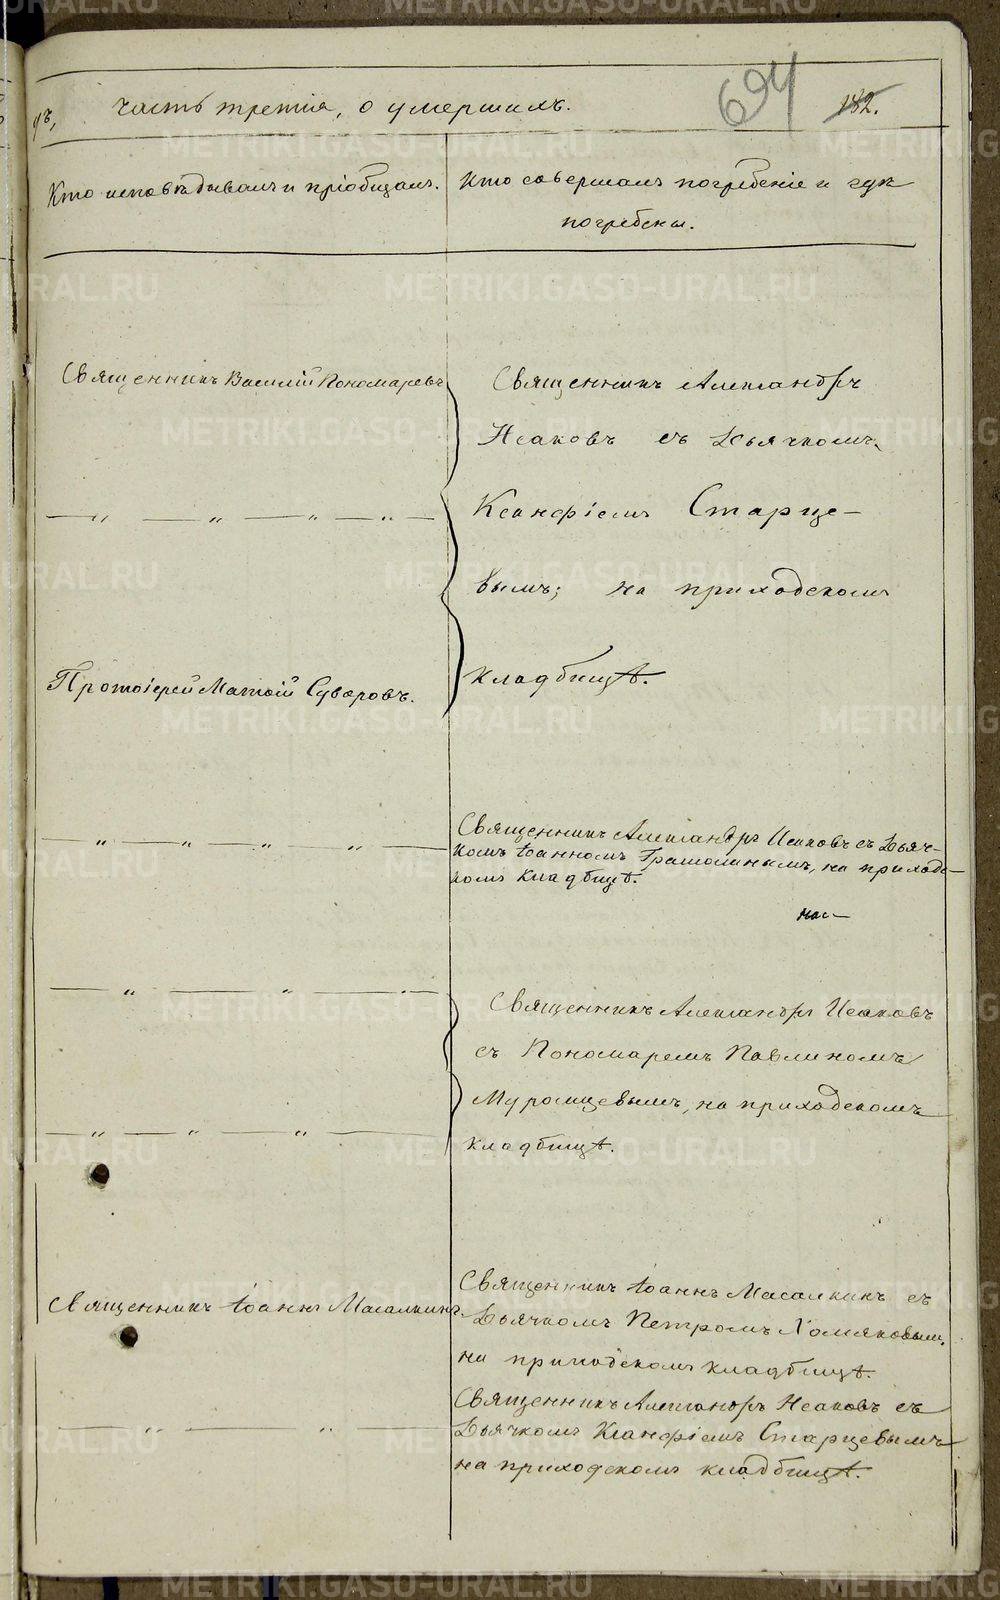 дъ, часть третія, о умершихъ.
694
182.
Кто исповѣдывалъ и пріобщалъ.
Кто совершалъ погребеніе и гдѣ
погребены.
Священникъ Василій Пономаревъ
Священникъ Александръ
Исаковъ съ Дьячкомъ
— „ — „ — „ — „ —
Ксанфіемъ Старце-
вымъ; на приходскомъ
Протоіерей Матѳій Суворовъ.
кладбищѣ.
— „ — „ — „ — „ —
Священникъ Александръ Исаковъ съ Дьяч-
комъ Іоанномъ Грамолинымъ, на приходс-
комъ кладбищѣ.
нас—
— „ — „ — „ —
Священникъ Александръ Исаковъ
съ Пономаремъ Павлиномъ
Муромцевымъ, на приходскомъ
— „ — „ — „ —
кладбищѣ.
Священникъ Іоаннъ Масалкинъ.
Священникъ Іоаннъ Масалкинъ съ
Дьячкомъ Петромъ Хомяковым.
на приходскомъ кладбищѣ.
— „ — „ —
Священникъ Александръ Исаковъ съ
Дьячкомъ Ксанфіемъ Старцевымъ
на приходскомъ кладбищѣ.
METRIKI.GASO-URAL.RU